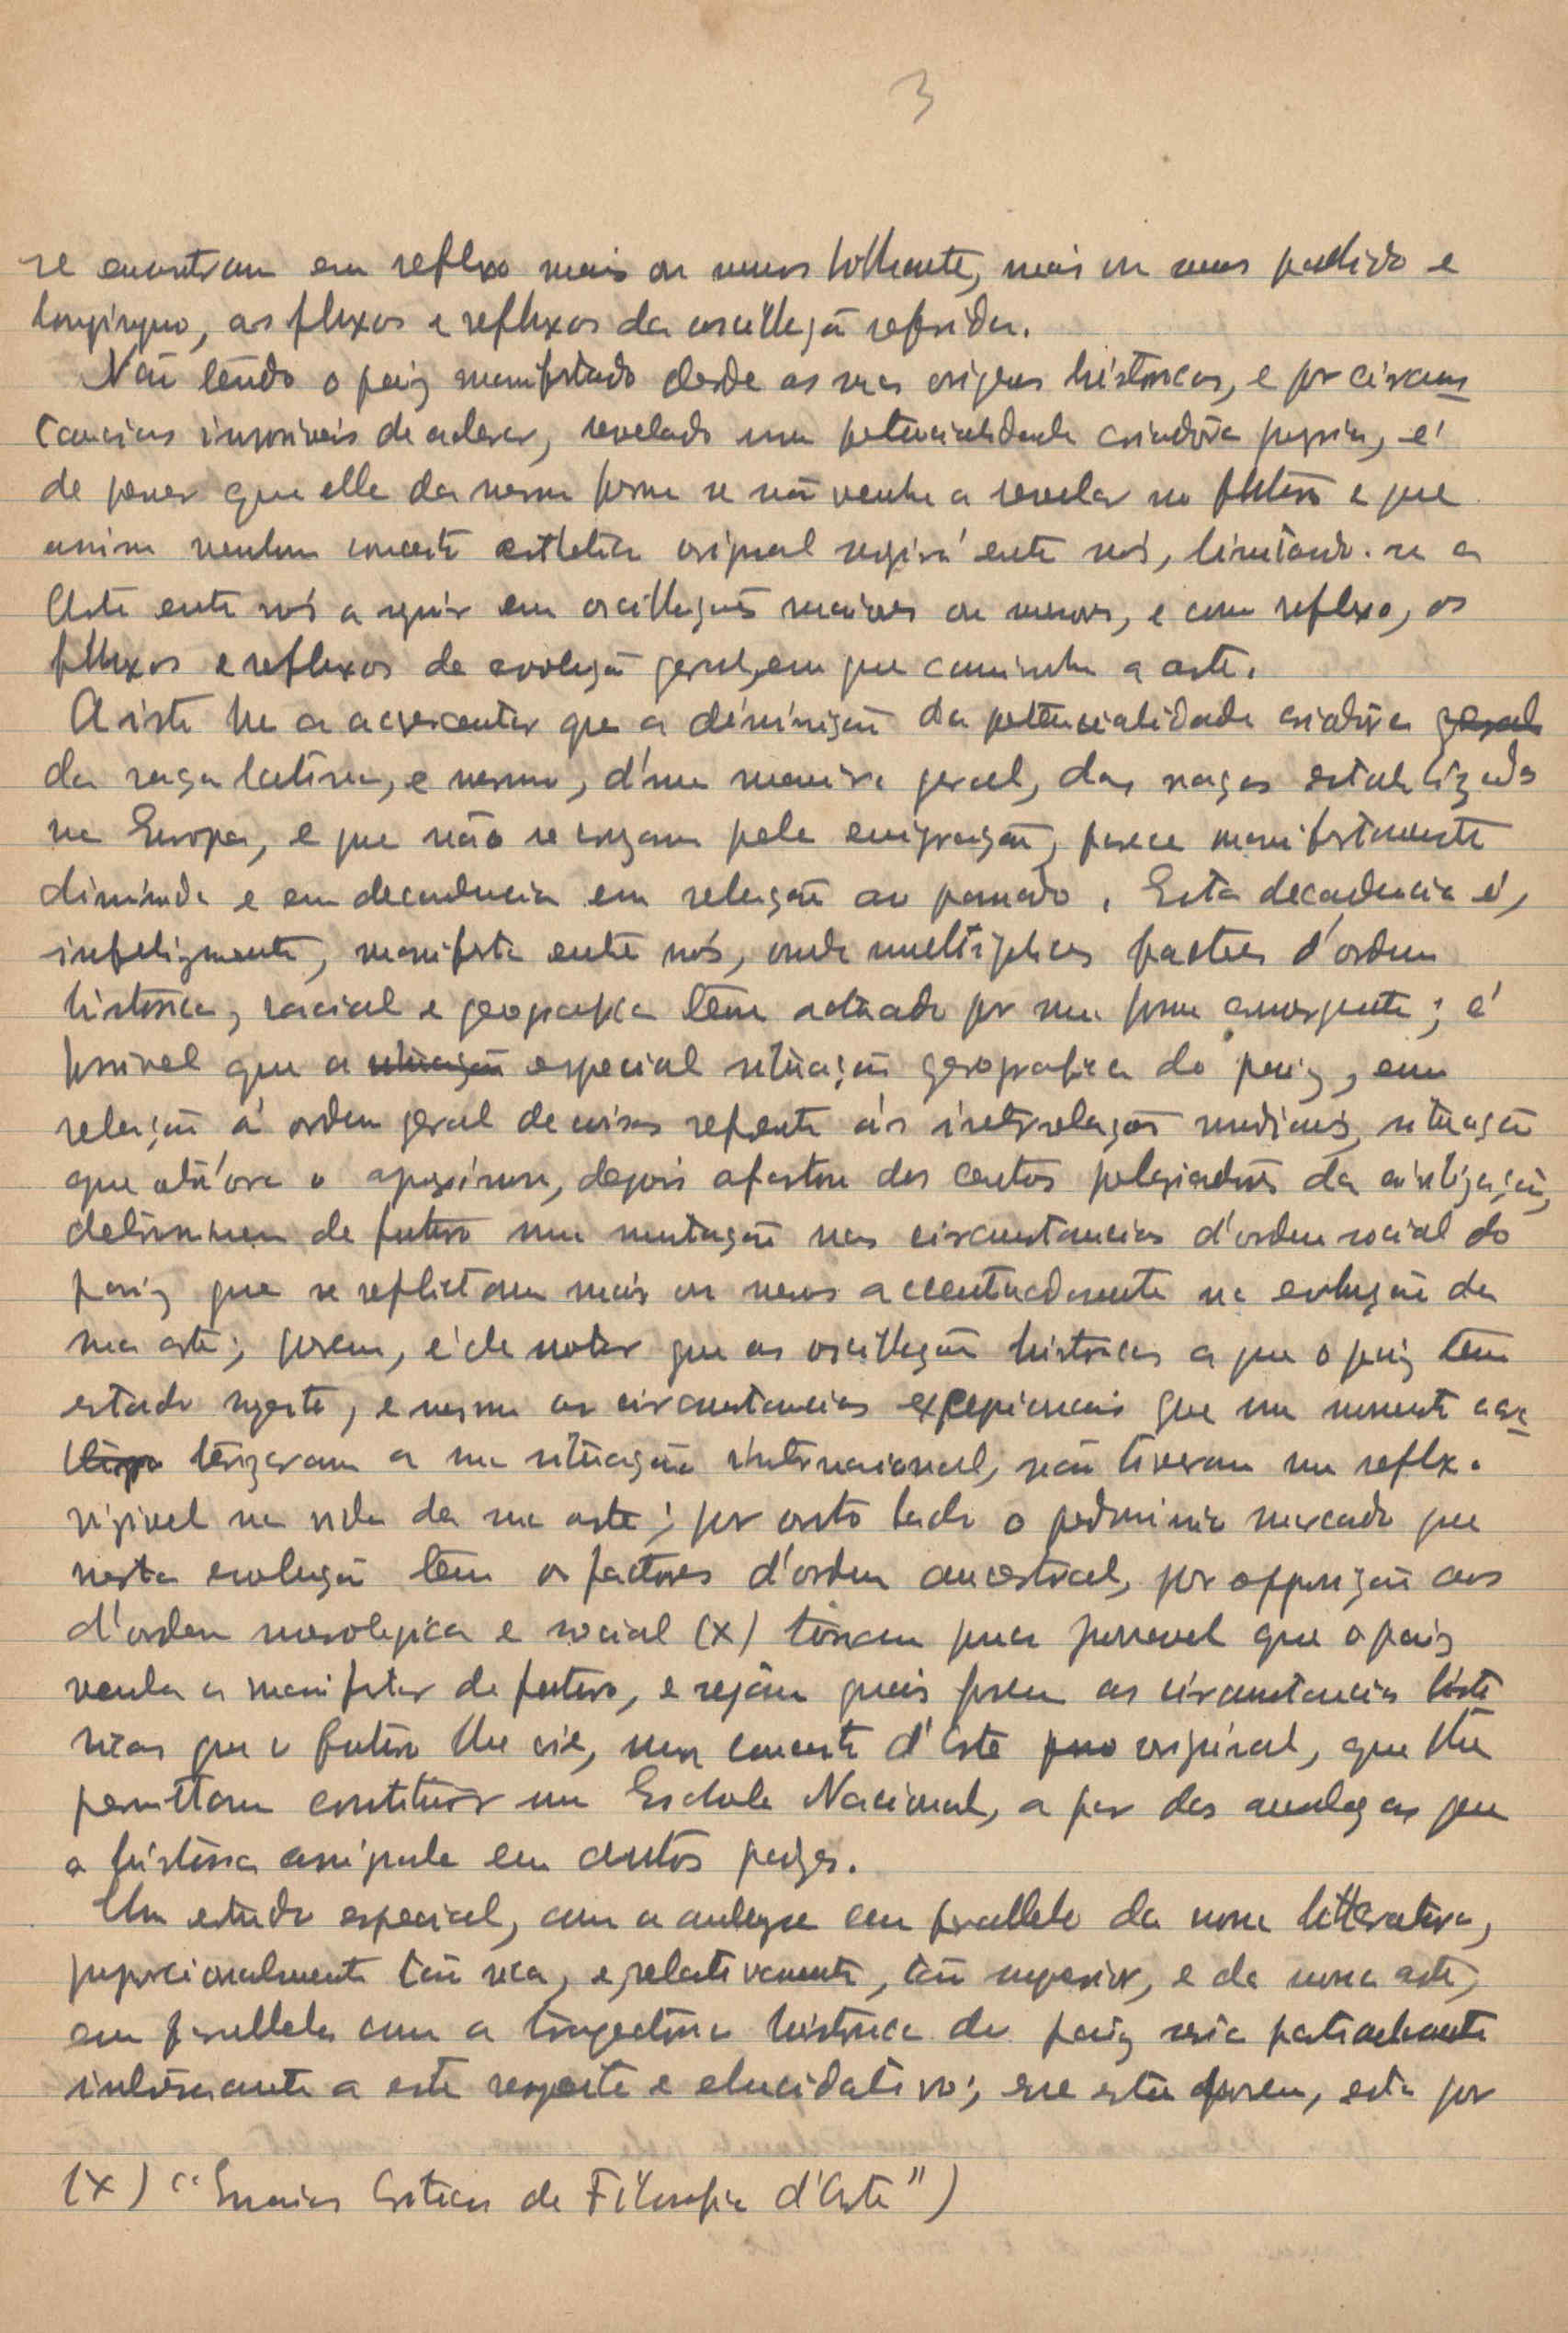 3
se encontram em reflexo mais ou menos brilhante, mais ou menos pallido e
longinquo, as fluxos e refluxos da oscillação referida.
Não tendo o paiz manifestado desde as suas origens historicas, e por circums
tancias de , revelado uma potencialidade criadôra propria, é
de que ella da mesma forma se não venha a revelar no futuro e que
assim nenhum conceito esthetico original surgirá entre nós, limitando-se a
Arte entre nós a seguir em oscillações maiores ou menores, e com reflexo, os
fluxos e refluxos da evolução geral, em que caminha a arte.
A isto ha a accrescentar que a diminuição da potencialidade criadôra geral
da raça latina, e mesmo, d'uma maneira geral, das raças estabilizadas
na Europa, e que não se cruzam pela emigração, parece manifestamente
diminuida e em decadencia em relação ao passado. Esta decadencia é,
infelizmente, manifesta entre nós, onde multiplices factores d'ordem
historica, racial e geografica têm actuado por uma forma convergente; é
possivel que a situação especial situação geografica do paiz, em
relação á ordem geral de coisas referente ás interrelações mundiais, situação
que até'ora o approximou, depois afastou dos centos polarisadores da civilização,
determinem de futuro uma mutação nas circunstancias d'ordem social do
paiz que se reflictam mais ou menos accentuadamente na evolução da
sua arte; porem, é de notar que as oscillações historicas a que o paiz tem
estado sujeito, e mesmo as circunstancias excepcionais que um momento carac
terizaram a sua situação internacional, não tiveram um reflexo
visivel na vida da sua arte; por outro lado o predominio marcado que
nesta evolução têm os factores d'ordem ancestral, por opposição aos
d'ordem mesologica e social (x) tornam pouco provavel que o paiz
venha a manifestar de futuro, e sejam quais forem as circunstancias histo
ricas que o futuro lhe crie, um conceito d'Arte original, que lhe
permittam constituir uma Eschola Nacional, a par das analogas que
a historia assignala em outros paizes.
Um estudo especial, com a analyse em parallelo da nossa litteratura,
proporcionalmente tão rica, e, relativamente, tão superior, e da nossa arte,
em parallelo com a trajectoria historica do paiz seria particularmente
interessante a este respeito e elucidativo; esse estudo porem, está por
(x) ("Ensaios Criticos de Filosofia d'Arte")